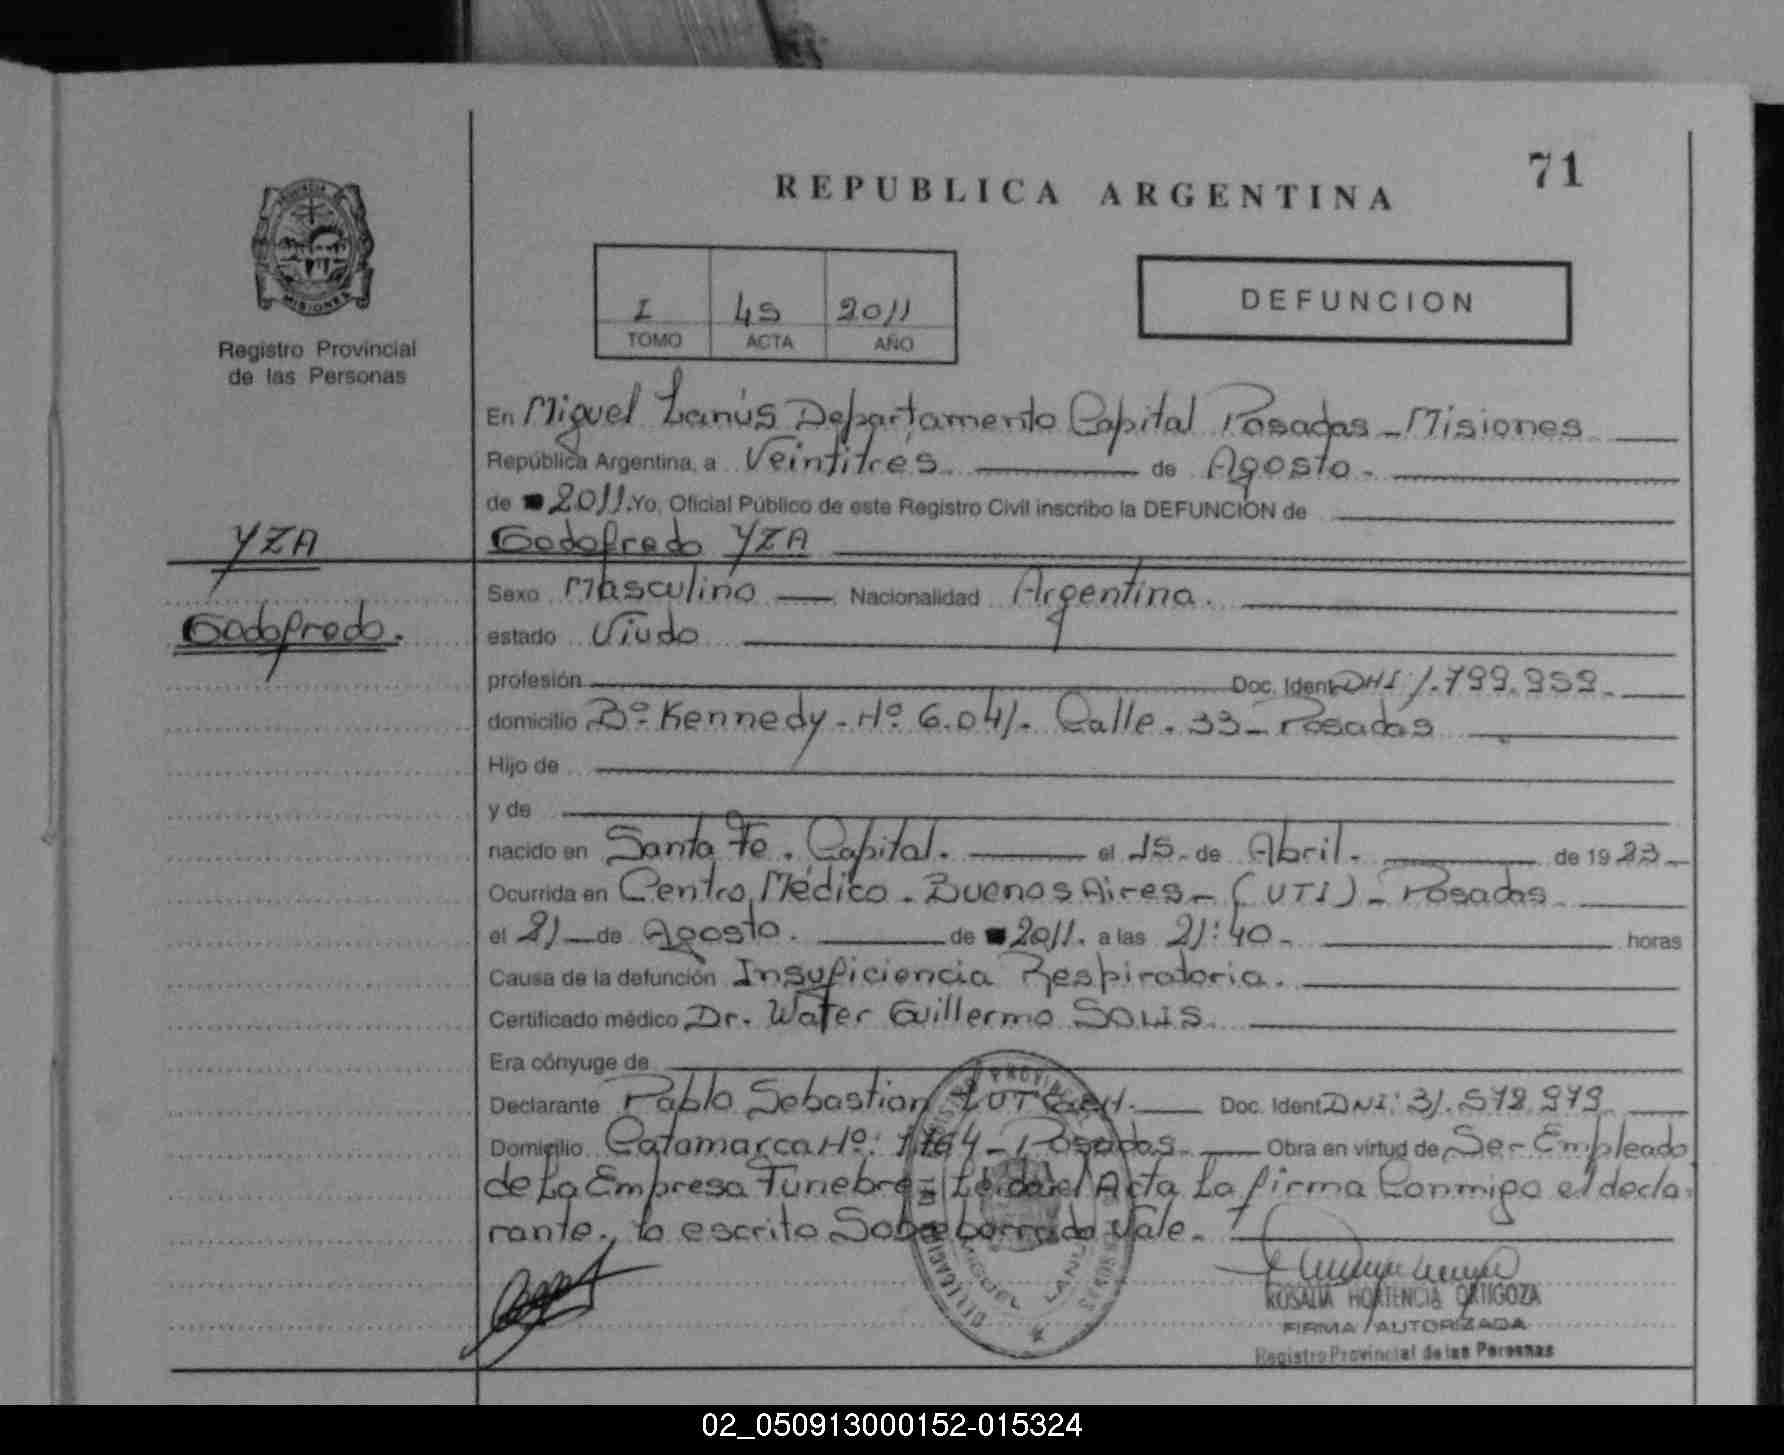 71
REPUBLICA ARGENTINA
PROVINCIA
MISIONES
Registro Provincial
de las Personas
I 49 2011
TOMO ACTA AÑO
DEFUNCION
En Miguel Lanús Departamento Capital Posadas - Misiones
República Argentina, a Veintitrés de Agosto.
de 2011. Yo, Oficial Público de este Registro Civil inscribo la DEFUNCION de
YZA
Godofredo YZA
Sexo Masculino Nacionalidad Argentina.
Godofredo.
estado Viudo
profesión Doc. Ident. DNI 1.799.959.
domicilio Bº. Kennedy - Nº 6.041. Calle. 33 - Posadas
Hijo de
y de
nacido en Santa Fe. Capital. el 15 - de Abril. de 19 23 -
Ocurrida en Centro Médico. Buenos Aires - (UTI) - Posadas
el 21 de Agosto. de 2011. a las 21:40 - horas
Causa de la defunción Insuficiencia Respiratoria.
Certificado médico Dr. Water Guillermo SOLIS.
Era cónyuge de
Declarante Pablo Sebastian Doc. Ident. DNI: 31.572.979
Domicilio Catamarca Nº: 1764 - Posadas. Obra en virtud de Ser Empleado
de La Empresa Fúnebre. Leída el Acta La firma Conmigo el decla-
rante. lo escrito Sobreborrado Vale.
DELEGACION MIGUEL LANUS
ROSALIA HORTENCIA ORTIGOZA
FIRMA AUTORIZADA
Registro Provincial de las Personas
02_050913000152-015324